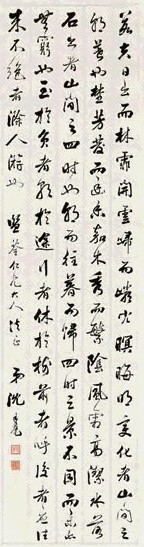 若夫日出而林霏開雲歸而巖穴暝晦明變化者山間之
朝暮也野芳發而幽香佳木秀而繁陰風霜高潔水落
石出者山間之四時也朝而往暮而歸四時之景不同而樂亦
無窮也至於負者歌於途行者休於樹前者呼後者應往
來不絕者滁人游也 仁兄大人法正 弟沈